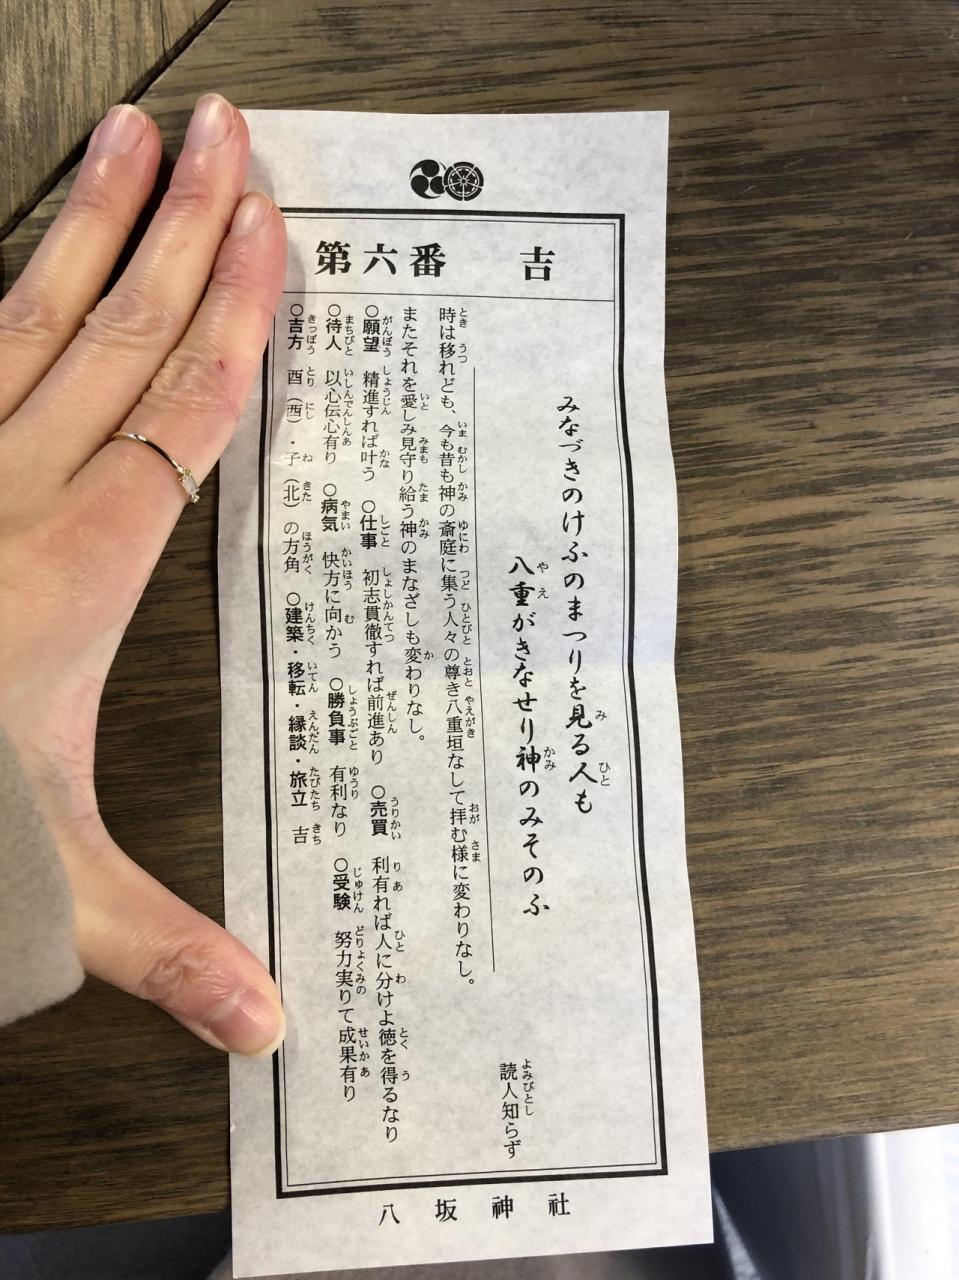 第六番　吉
みなづきのけふのまつりを見る人も
八重がきなせり神のみそのふ
読人知らず
時は移れども、今も昔も神の斎庭に集う人々の尊き八重垣なして拝む様に変わりなし。
またそれを愛しみ見守り給う神のまなざしも変わりなし。
○願望　精進すれば叶う　○仕事　初志貫徹すれば前進あり　○売買　利有れば人に分けよ徳を得るなり
○待人　以心伝心有り　○病気　快方に向かう　○勝負事　有利なり　○受験　努力実りて成果有り
○吉方　酉（西）・子（北）の方角　○建築・移転・縁談・旅立　吉
八坂神社